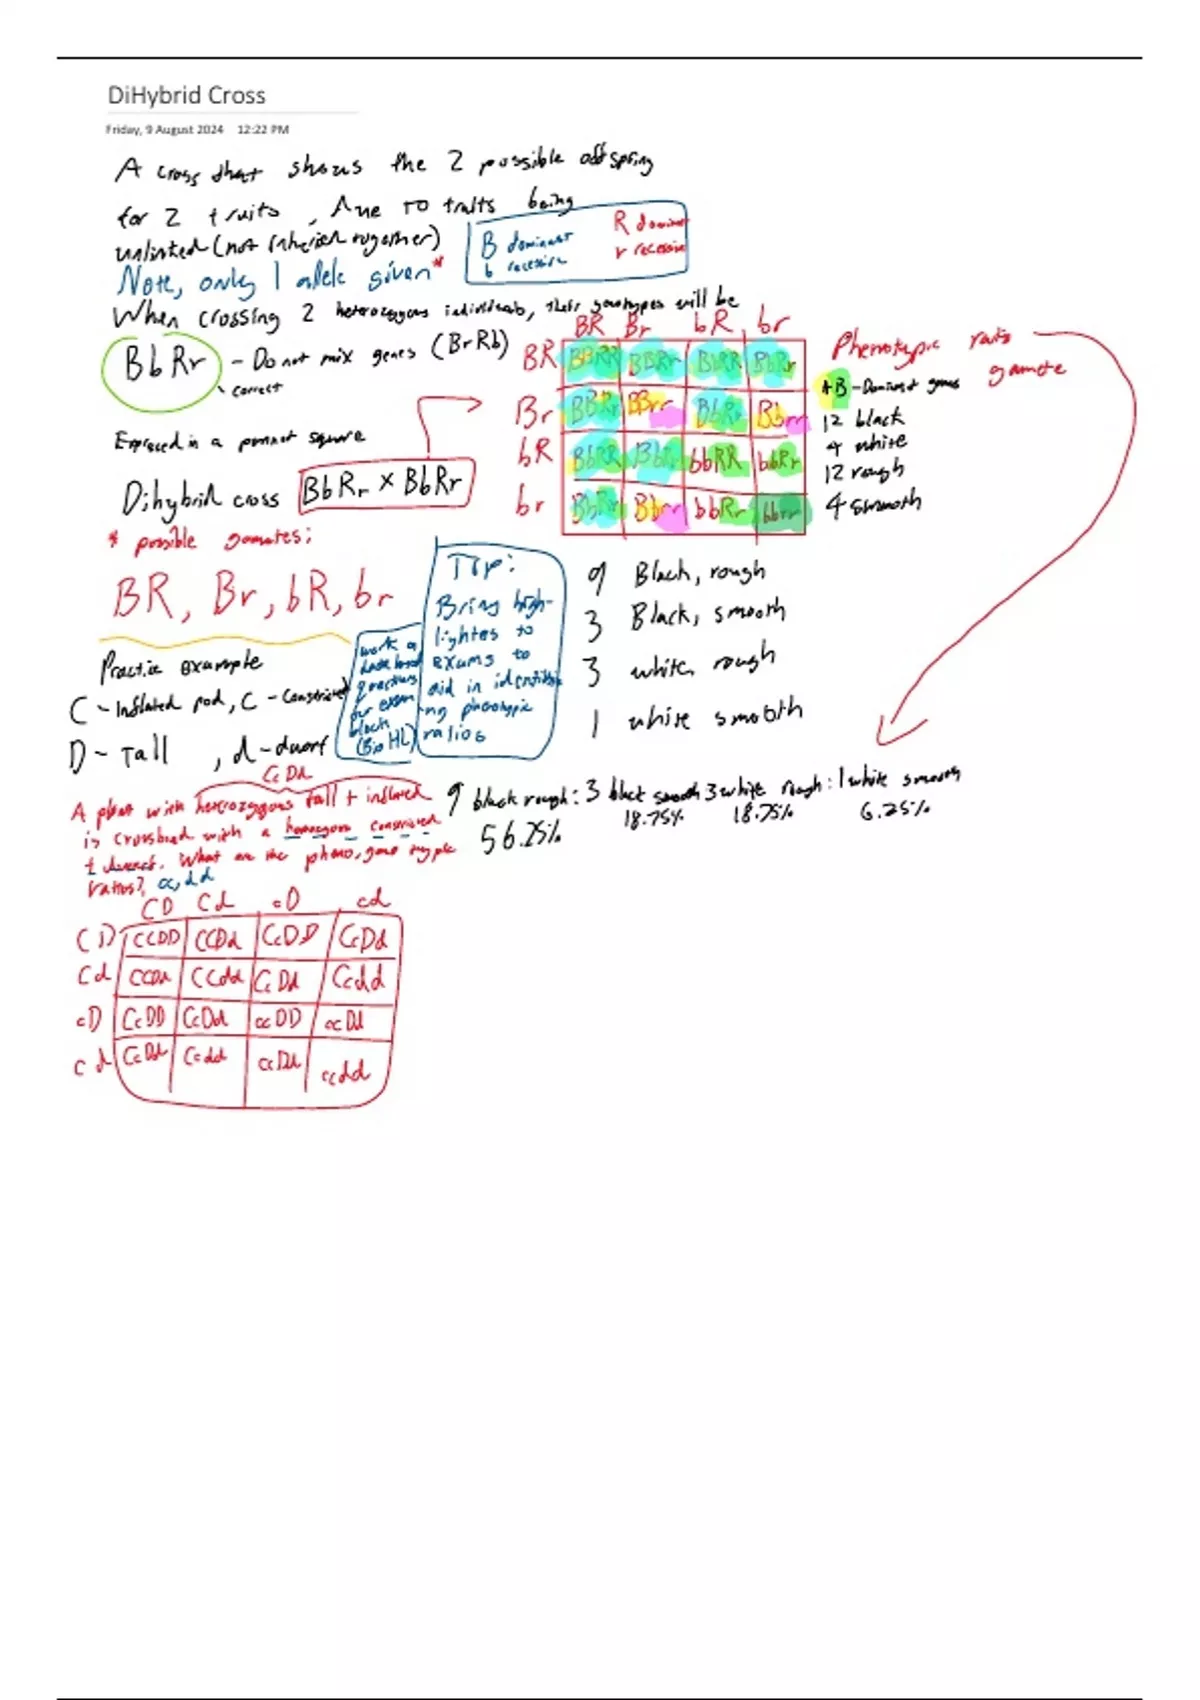 DiHybrid Cross
Friday, 9 August 2024 12:22 PM
A cross that shows the 2 possible offspring
for 2 traits, due to traits being
unlinked (not inherited together)
B dominant
b recessive
R dominant
r recessive
Note, only 1 allele given*
When crossing 2 heterozygous individuals, their genotypes will be
BbRr - Do not mix genes (BrRb)
correct
Expressed in a punnet square
Dihybrid cross BbRr × BbRr
BR Br bR br
BR BBRR BBRr BbRR BbRr
Br BBRr BBrr BbRr Bbrr
bR BbRR BbRr bbRR bbRr
br BbRr Bbrr bbRr bbrr
Phenotypic ratio
gamete
B - Dominant genes
12 black
4 white
12 rough
4 smooth
* possible gametes:
BR, Br, bR, br
9 Black, rough
3 Black, smooth
3 white rough
1 white smooth
Tip:
Bring high-
lightes to
exams to
aid in identify
ng phenotypic
ratios
work on
data based
questions
for exam
block
(Bio HL)
Practice example
C - Inflated pod, C - Constricted
D - Tall, d - dwarf
CcDd
A plant with heterozygous tall + inflated
is crossbred with a homozygous constricted
+ dwarf. What are the pheno, geno type
ratios?
cc, dd
9 black rough : 3 black smooth 3 white rough : 1 white smooth
56.25% 18.75% 18.75% 6.25%
CD Cd cD cd
CD CCDD CCDd CcDD CcDd
Cd CCDd CCdd CcDd Ccdd
cD CcDD CcDd ccDD ccDd
cd CcDd Ccdd ccDd ccdd